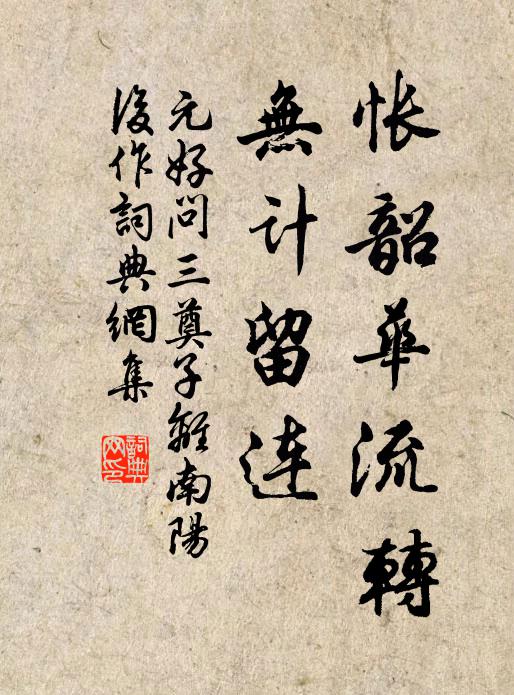 怅韶華流轉
無計留连
元好问三奠子離南陽
後作詞典網集
詞典
网印